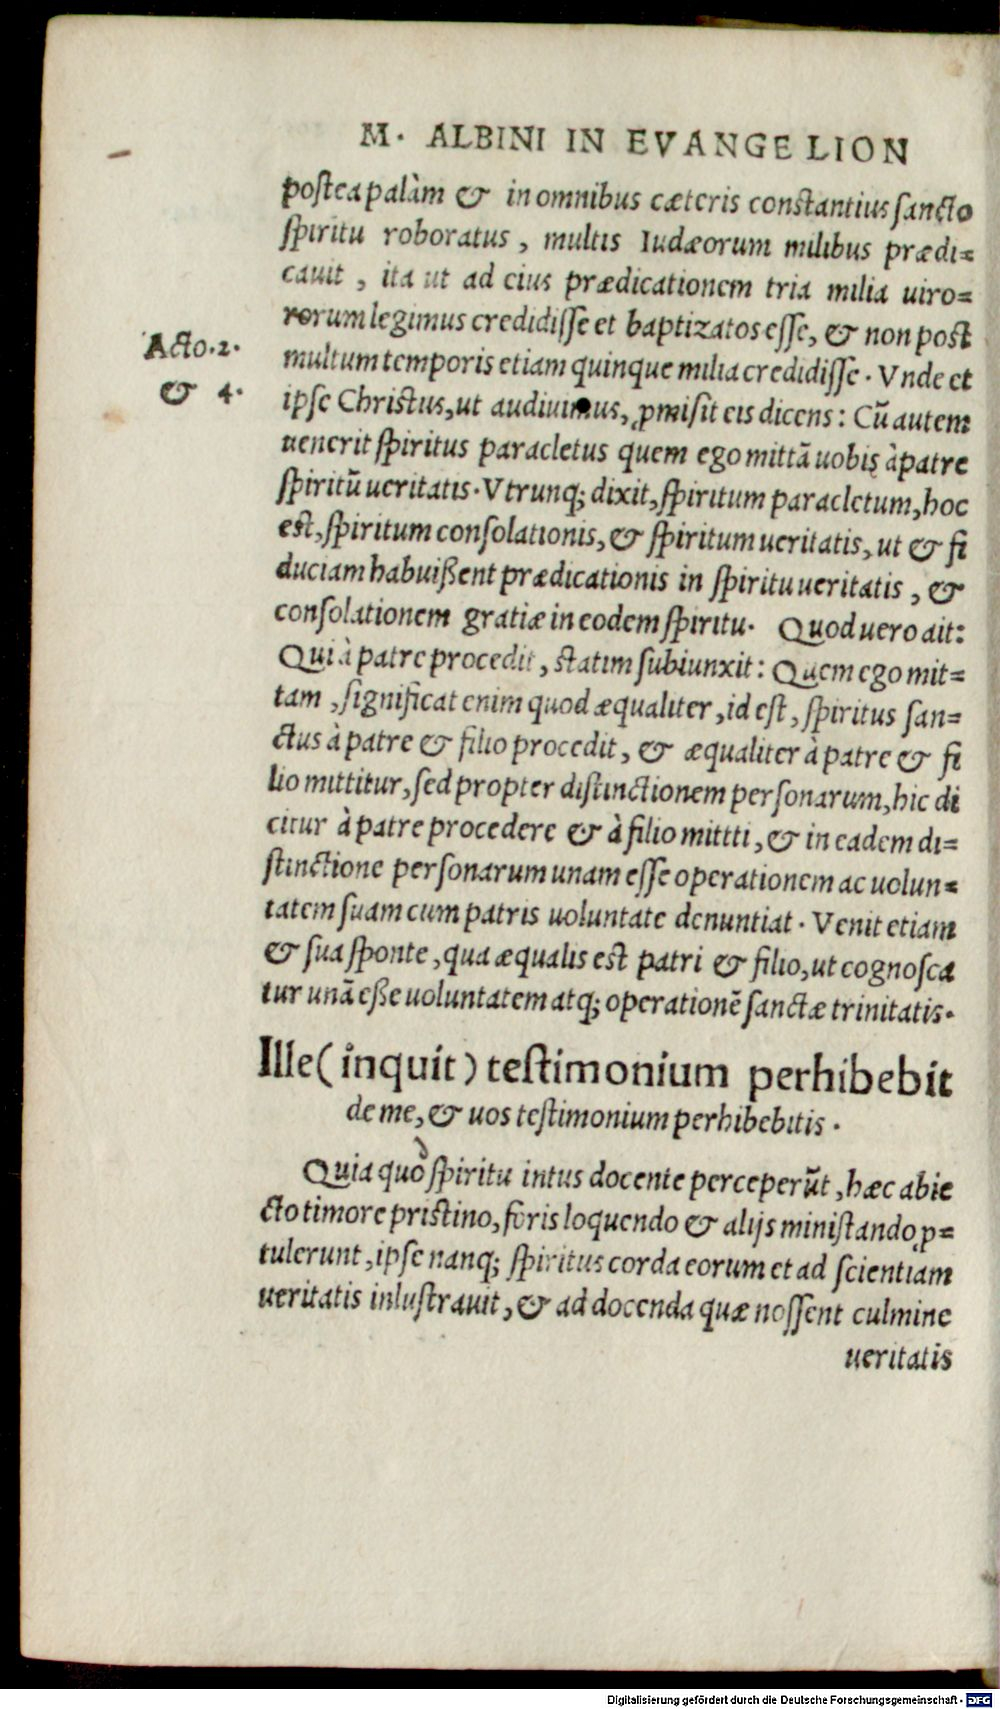 M. ALBINI IN EVANGELION
postea palàm & in omnibus cæteris constantius sancto
spiritu roboratus, multis Iudæorum milibus prædi=
cauit, ita ut ad eius prædicationem tria milia uiro=
rorum legimus credidisse et baptizatos esse, & non post
Acto.2.
multum temporis etiam quinque milia credidisse. Vnde et
& 4.
ipse Christus, ut audiuimus, ꝓmisit eis dicens: Cū autem
uenerit spiritus paracletus quem ego mittā uobis à patre
spiritū ueritatis. Vtrunq; dixit, spiritum paracletum, hoc
est, spiritum consolationis, & spiritum ueritatis, ut & fi
duciam habuißent prædicationis in spiritu ueritatis, &
consolationem gratiæ in eodem spiritu. Quod uero ait:
Qui à patre procedit, statim subiunxit: Quem ego mit=
tam, significat enim quod æqualiter, id est, spiritus san=
ctus à patre & filio procedit, & æqualiter à patre & fi
lio mittitur, sed propter distinctionem personarum, hic di
citur à patre procedere & à filio mittti, & in eadem di=
stinctione personarum unam esse operationem ac uolun=
tatem suam cum patris uoluntate denuntiat. Venit etiam
& sua sponte, qua æqualis est patri & filio, ut cognosca
tur unā eße uoluntatem atq; operationē sanctæ trinitatis.
Ille (inquit) testimonium perhibebit
de me, & uos testimonium perhibebitis.
Quia quò spiritu intus docente perceperūt, hæc abie
cto timore pristino, foris loquendo & alijs ministando ꝓ=
tulerunt, ipse nanq; spiritus corda eorum et ad scientiam
ueritatis inlustrauit, & ad docenda quæ nossent culmine
ueritatis
Digitalisierung gefördert durch die Deutsche Forschungsgemeinschaft - DFG